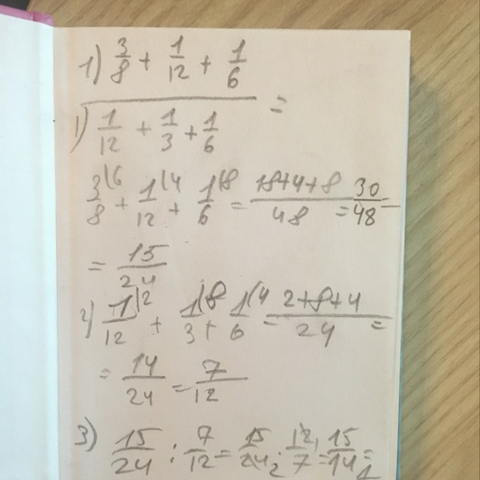 1) 3/8 + 1/12 + 1/6
1) 1/12 + 1/3 + 1/6 =
3/8 (6 + 1/12 (4 + 1/6 (8 = 18+4+8/48 = 30/48 =
= 15/24
2) 1/12 (2 + 1/3 (8 + 1/6 (4 = 2+8+4/24 =
= 14/24 = 7/12
3) 15/24 : 7/12 = 15/24 2 · 12/7 = 15/14 = 1